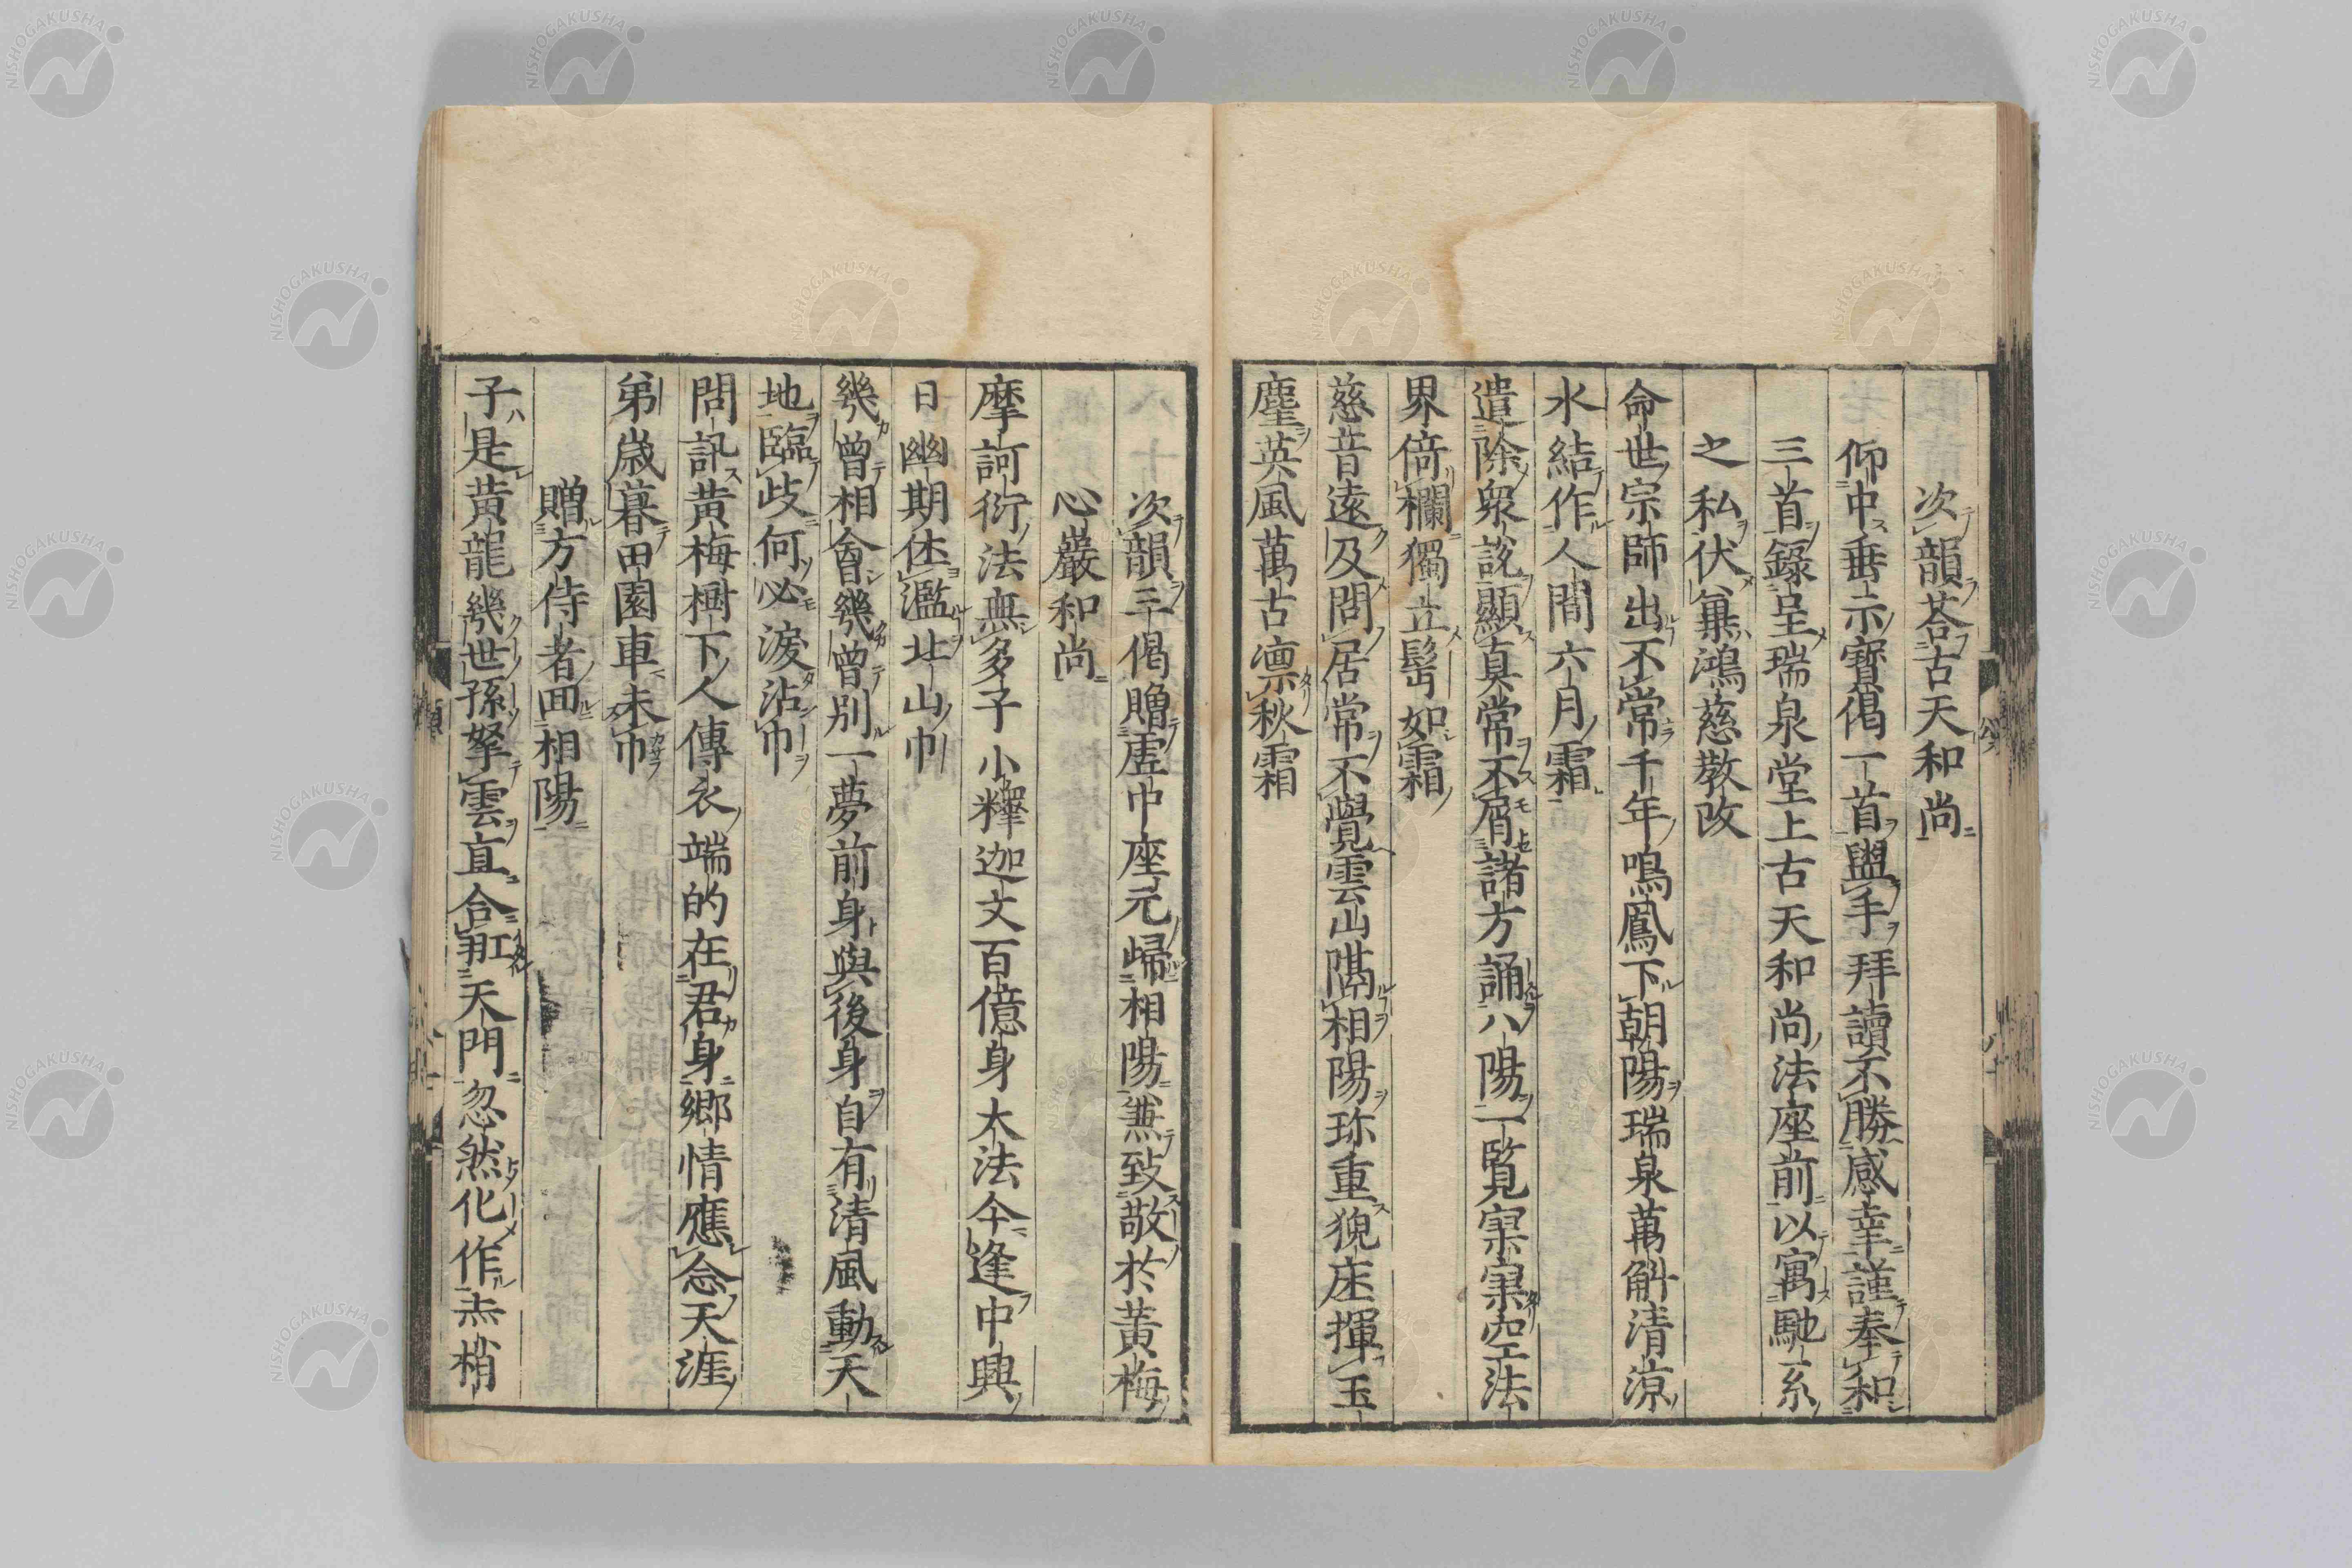 次韻荅古天和尚
仰中垂示寶偈一首盥手拜讀不勝感幸謹奉和
三首錄呈瑞泉堂上古天和尚法座前以寓馳系
之私伏兾鴻慈教改
命世宗師出不常千年鳴鳳下朝陽瑞泉萬斛清凉
水結作人間六月霜
遣除衆說顯真常不屑諸方誦八陽一覧寥寥空法
界倚欄獨立髩如霜
慈音遠及問居常不覺雲山隔相陽珎重猊床揮玉
麈英風萬古凛秋霜
次韻三偈贈虚中座元歸相陽兼致敬於黄梅
心巖和尚
摩訶衍法無多子小釋迦文百億身大法今逢中興
日幽期休濫北山巾
幾曾相會幾曾別一夢前身與後身自有清風動天
地臨歧何必淚沾巾
問訊黄梅樹下人傳衣端的在君身鄉情應念天涯
弟歲暮田園車未巾
贈方侍者囬相陽
子是黄龍幾世孫拏雲直合𦐛天門忽然化作赤梢
NISHOGAKUSHA